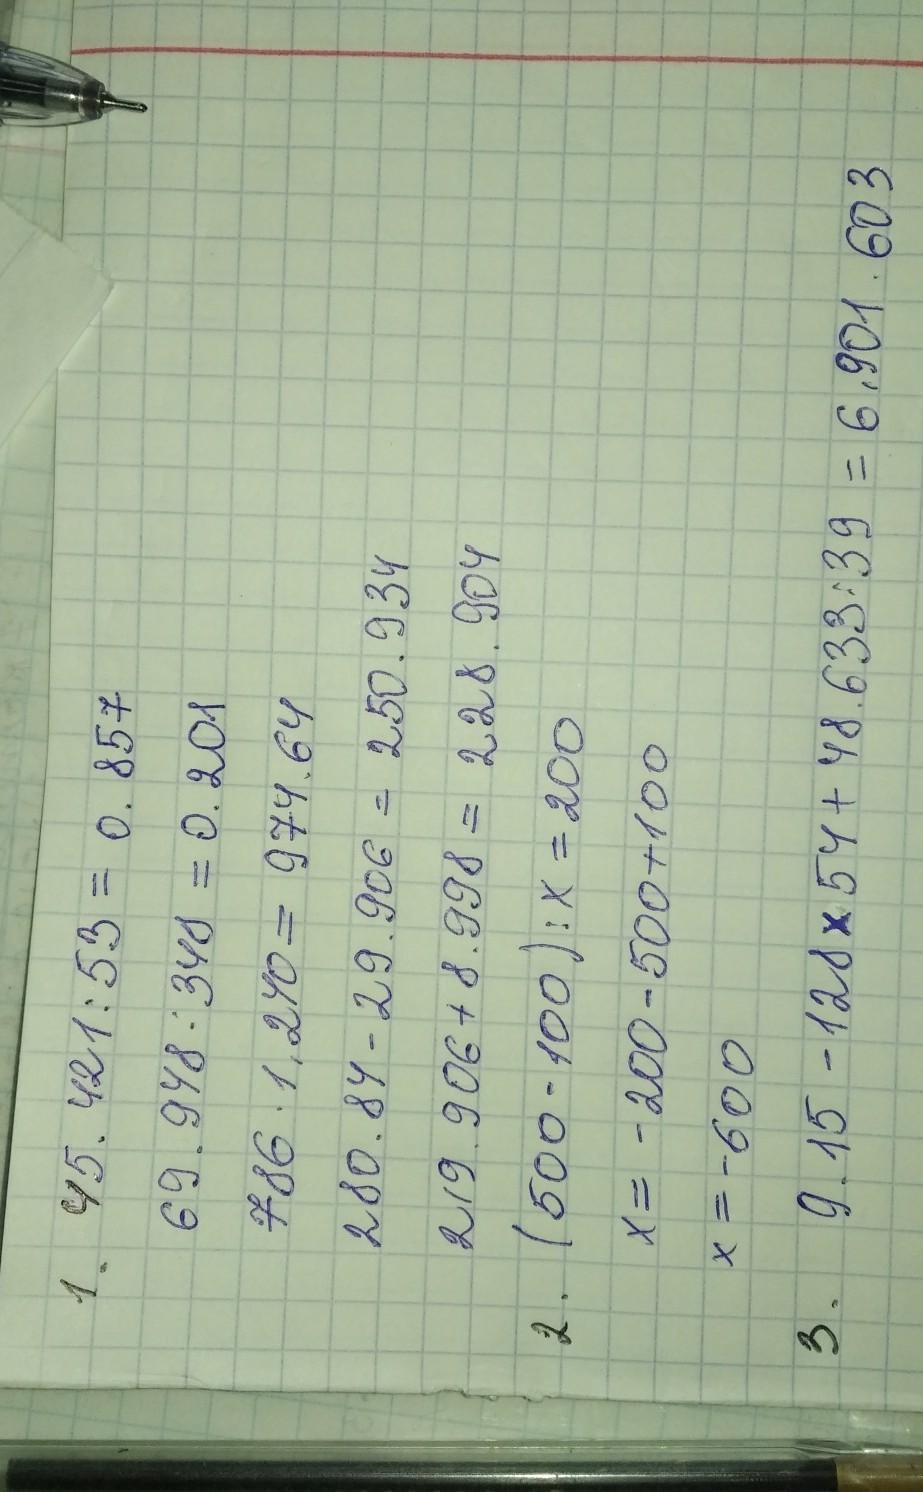 1. 45.421:53 = 0.857
69.948:348 = 0.201
786·1,240 = 974.64
280.84-29.906 = 250.934
219.906+8.998 = 228.904
2. (500-100):x = 200
x = -200-500+100
x = -600
3. 9.15-128x54+48.633:39 = 6,901.603